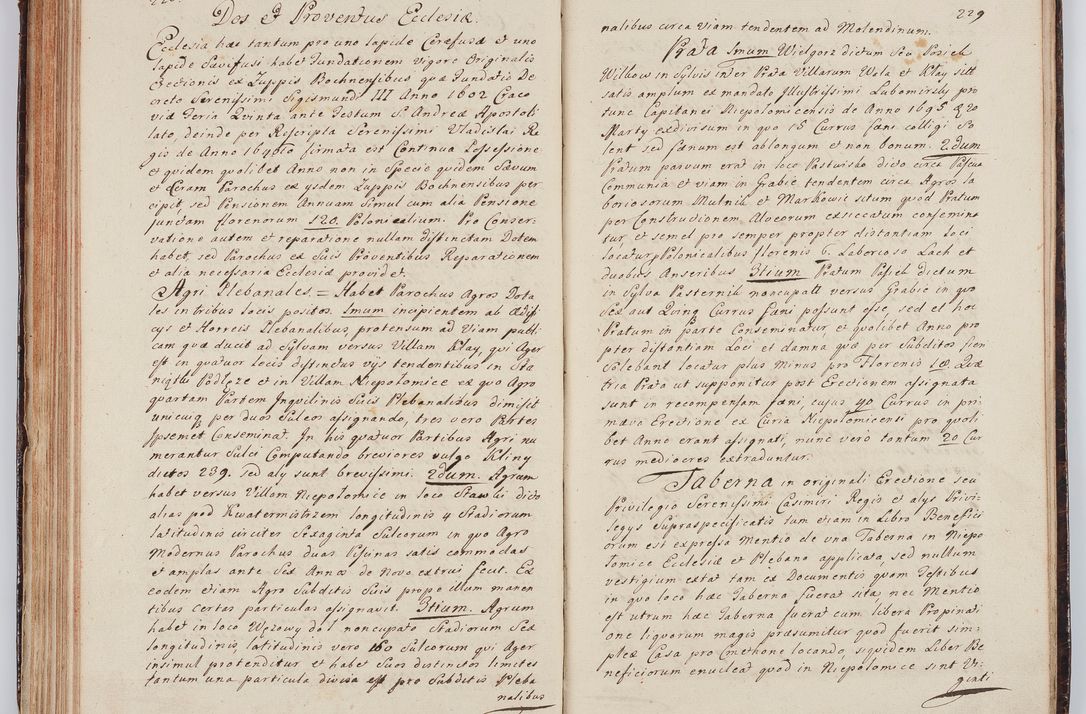 Dos et Proventus Ecclesiæ.
Ecclesia hæc tantum pro uno lapide Cerefusæ et uno
lapide Sævifusi habet fundationem vigore Originalis
Erectionis ex Zuppis Bochnensibus quæ fundatio De
creto Serenissimi Sigismundi III Anno 1602 Craco
viæ Feria Quinta ante Festum S. Andreæ Apostoli
lato, deinde per Rescripta Serenissimi Vladislai Re
gis de Anno 1640to firmata est Continua Possessione
et quidem quolibet Anno non in Specie quidem Sævum
et Ceram Parochus ex ysdem Zuppis Bochnensibus per
cipit, sed Pensionem Annuam Simul cum alia Pensione
junctam florenorum 120 Polonicalium. Pro Conser-
vatione autem et reparatione nullam distinctam Dotem
habet, sed Parochus ex Suis Proventibus Reparationem
et alia necessaria Ecclesiæ providet.
Agri Plebanales = Habet Parochus Agros Dota
les in tribus locis positos. 1mum incipientem ab Ædifi
cys et Horreis Plebanalibus, protensum ad Viam publi
cam quæ ducit ad Sylvam versus Villam Kłay, qui Ager
est in quatuor locis distinctus vijs tendentibus in Sta
niątki Podłęże et in Villam Niepołomice ex quo Agro
quartam Partem Inquilinis Suis Plebanalibus dimisit
unicuiq per duos Sulcos assignando, tres vero Partes
Ipsemet Conseminat. In his quatuor Partibus Agri nu
merantur Sulci Computando breviores vulgo Kliny
dictos 239. Sed aly sunt brevissimi. 2dum. Agrum
habet versus Villam Niepołomice in loco Stawki dicto
alias pod Kwatermistrzem longitudinis 4 Stadiorum
latitudinis circiter Sexaginta Sulcorum in quo Agro
Modernus Parochus duas Piscinas satis commodas
et amplas ante Sex Annos de Novo extrui fecit. Ex
eodem etiam Agro Subditis Suis prope illum manen
tibus certas particulas assignavit. 3tium. Agrum
habet in loco Wężowy doł noncupato Stadiorum Sex
longitudinis, latitudinis vero 160 Sulcorum qui Ager
insimul protenditur et habet Suos distinctos limites
tantum una particula divisa est pro Subditis Pleba
nalibus
229
nalibus circa viam tendentem ad Molendinum.
Prata 1mum Wielgorz dictum seu Posiek
Wilkow in Sylvis inter Prata Villarum Wola et Kłay sitt
satis amplum ex mandato Illustrissimi Lubomirsky pro
tunc Capitanei Niepolomicensis de Anno 1695 20
Marty exdivisum in quo 15 Currus fæni colligi So
lent sed fænum est ablongum et non bonum. 2dum
Pratum parvum erat in loco Pastwisko dicto circa Pascua
Communia et viam in Grabie tendentem circa Agros la
boriosorum Mutnik et Markowic situm quod Pratum
per Constructionem Alveorum exsiccatum consemina
tur, et semel pro semper propter distantiam loci
locatur Polonicalibus florenis 6. Laborioso Lach et
duobus Anseribus 3tium Pratum Posiek dictum
in Sylva Pasternik noncupatt versus Grabie in quo
Sex aut Quinq Currus fæni possunt esse, sed et hoc
Pratum in parte Conseminatur et quolibet Anno pro
pter distantiam loci et damna quæ per Subditos fieri
Solebant locatur plus minus pro Florenis 18. Quæ
tria Prata ut supponitur post Erectionem assignata
sunt in recompensam fæni, cujus 40 Currus in pri
mæva Erectione ex Curia Niepolomicensi pro quoli
bet Anno erant assignati, nunc vero tantum 20 Cur
rus mediocres extraduntur.
Taberna in originali Erectione seu
Privilegio Serenissimi Casimiri Regis et alys Privi-
legys Supraspecificatis tum etiam in Libro Benefici
orum est expressa Mentio de una Taberna in Niepo
łomice Ecclesiæ et Plebano applicata, sed nullum
vestigium extat tam ex Documentis quam Testibus
in quo loco hæc Taberna fuerat sita nec Mentio
est utrum hæc Taberna fuerat cum libera Propinati
one liquorum magis præsumitur quod fuerit sim-
plex Casa pro Cmethone locando, siquidem Liber Be
neficiorum enucleat quod in Niepołomice sint Vi-
ginti